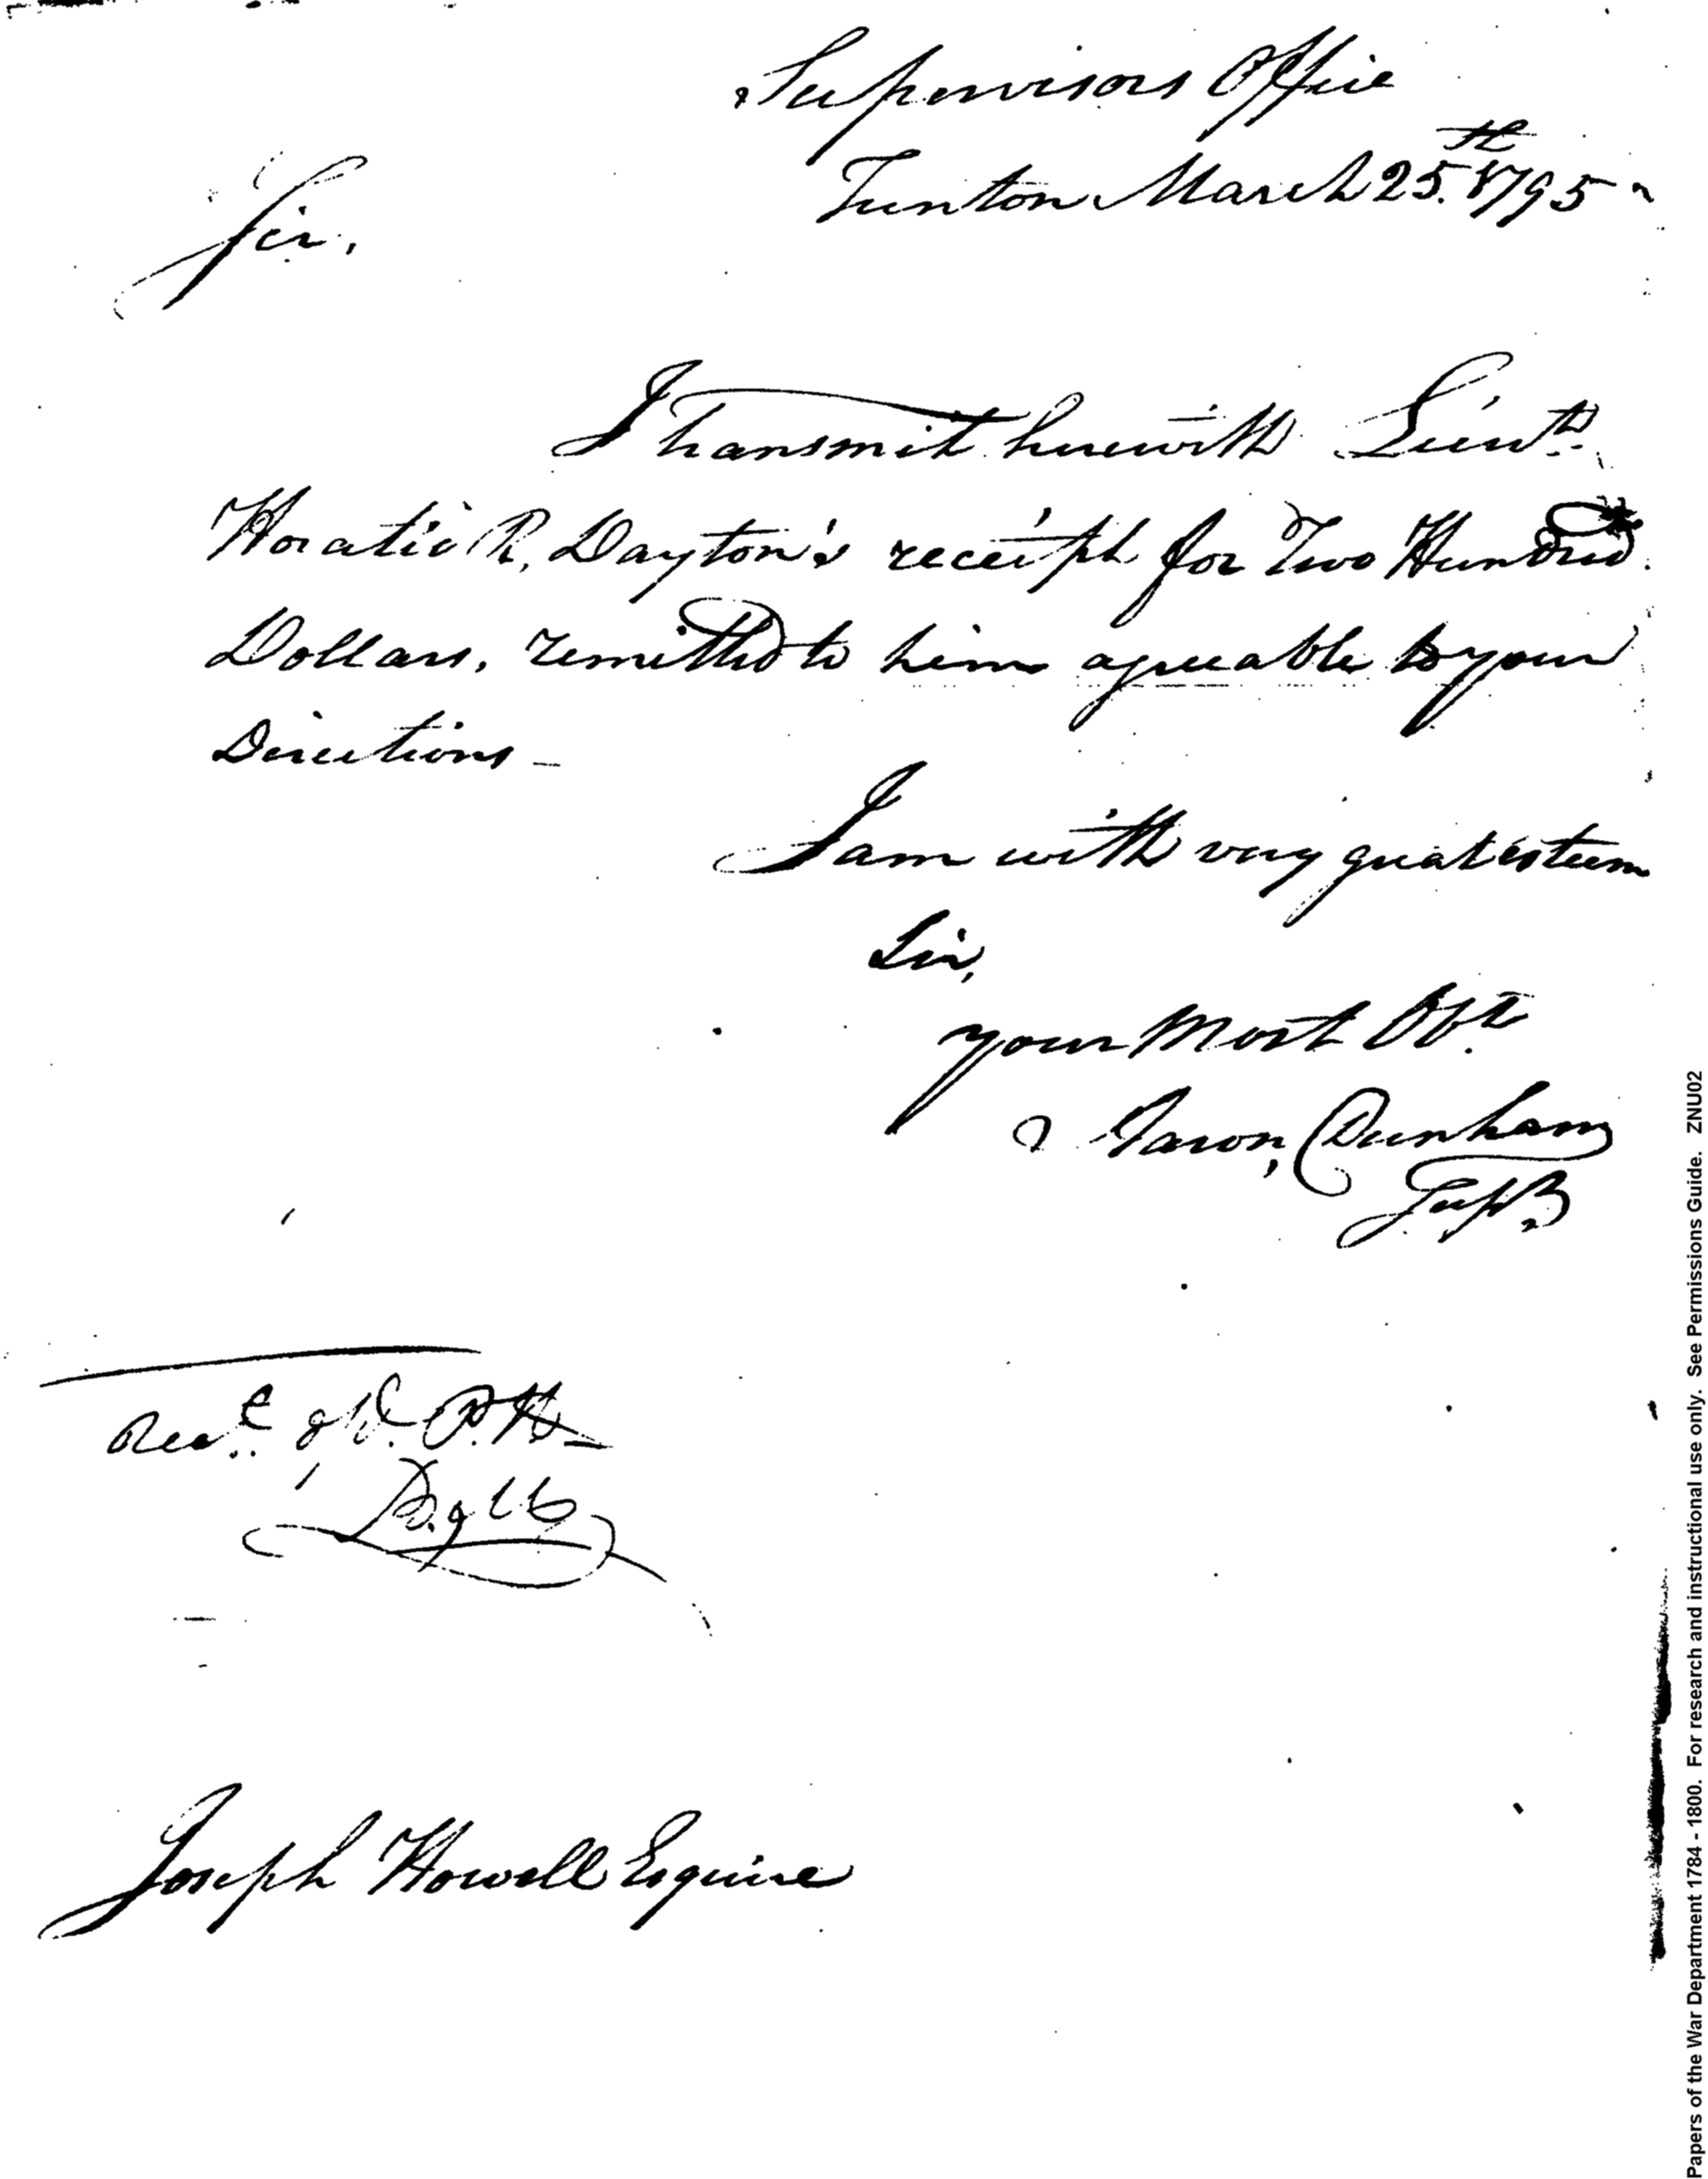 Supervisors Office
Trenton March 25th. 1795
Sir,
I transmit herewith Lieut.
Horatio R, Dayton's receipt for Two Hundred
Dollars, remitted to him agreeable to your
Directions_
I am with very great esteem
Sir,
your Most Obt.
Aaron, Dunham
Supr.
Joseph Howell Esquire
Papers of the War Department 1784 - 1800. For research and instructional use only. See Permissions Guide. ZNU02